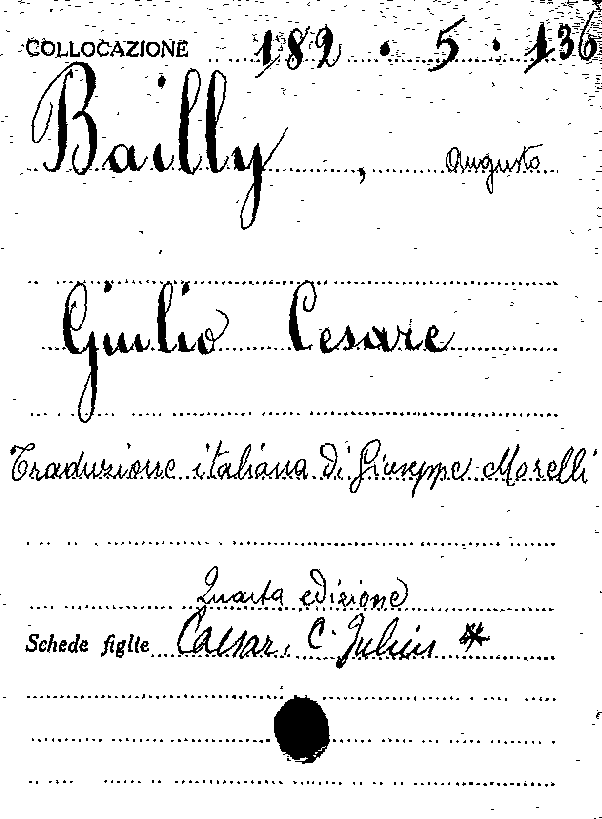 COLLOCAZIONE 182 . 5 . 136
Bailly, Augusto
Giulio Cesare
Traduzione italiana di Giuseppe Morelli
Quarta edizione
Schede figlie Caesar, C. Julius *